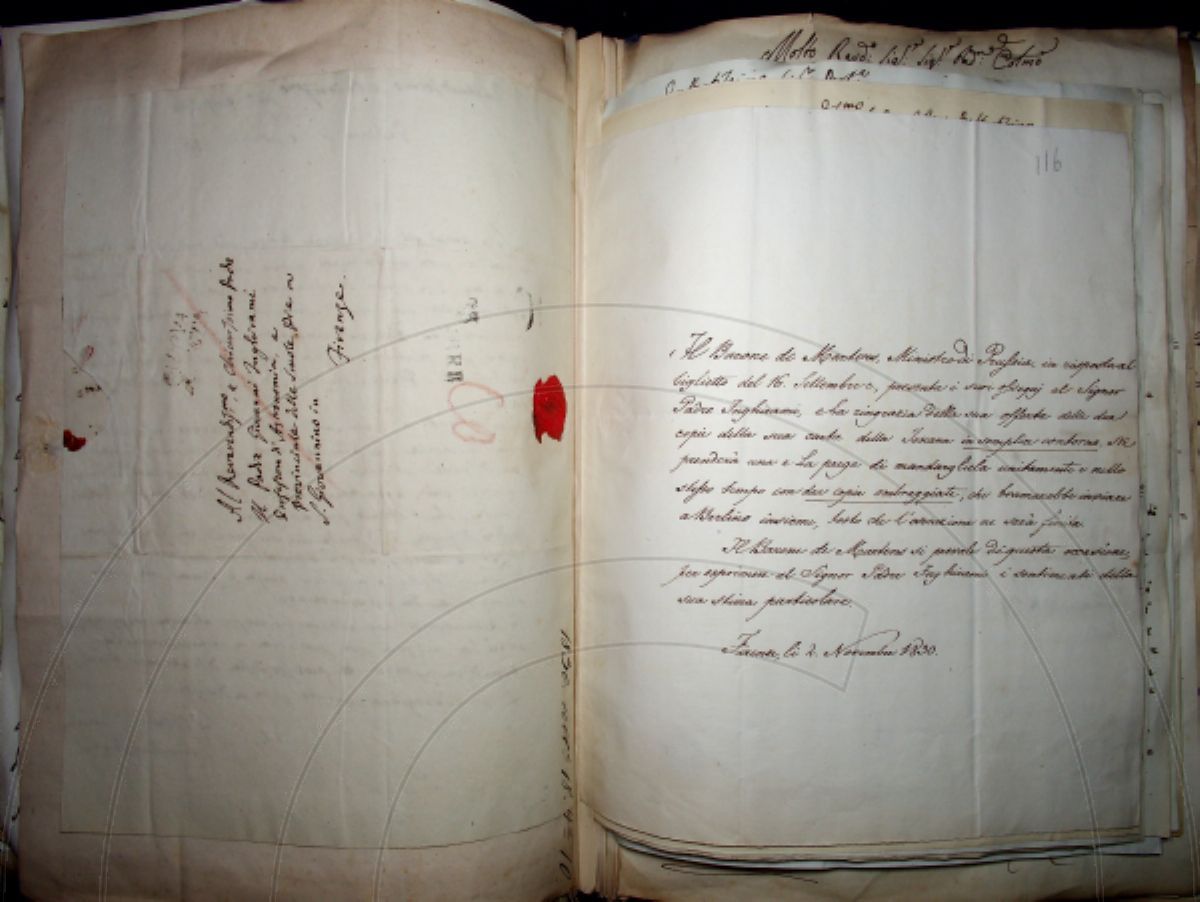 Al Reverendissmo e Chiarissimo Padre
Il Padre Giovanni Inghirami
Professore di Astronomia, e
Provinciale delle Scuole Pie in
S. Giovannino in
Firenze.
Molto Revd.
116
Il Barone de Martens, Ministro di Prussia, in risposta al
biglietto del 16. Settembre, presenta i suoi ossequj al Signor
Padre Inghirami, e la ringrazia della sua offerta delle due
copie della sua carta della Toscana in semplice contorno. Ne
prenderà una e La prega di mandargliela unitamente e nello
stesso tempo con due copie ombreggiate, che bramarebbe inviare
a Berlino insieme, tosto che l'
ne sarà finita.
Il Barone de Martens si prevale di questa occasione,
per esprimere al Signor Padre Inghirami i sentimenti della
sua stima particolare.
li 2. Novembre 1830.